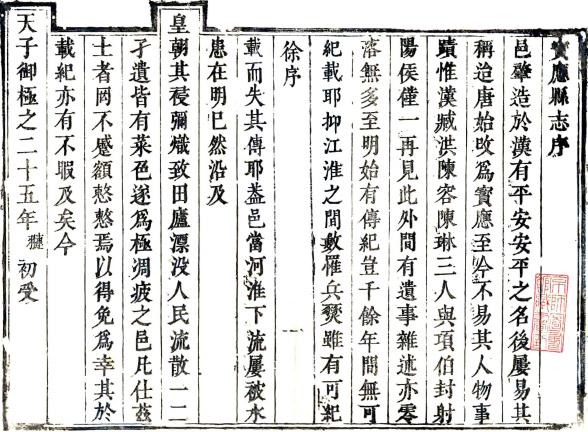 寶應縣志序
邑肇造於漢有平安安平之名後屢易其
稱迨唐始改爲寶應至今不易其人物事
蹟惟漢臧洪陳容陳琳三人與項伯封射
陽侯僅一再見此外間有遺事雜述亦零
落無多至明始有傳紀豈千餘年間無可
紀載耶抑江淮之間數罹兵燹雖有可紀
徐序
一
載而失其傳耶葢邑當河淮下流屢被水
患在明已然沿及
皇朝其祲彌熾致田廬漂没人民流散一二
孑遺皆有菜色遂爲極凋疲之邑凡仕兹
土者罔不蹙額愁愁焉以得免爲幸其於
載紀亦有不暇及矣今
天子御極之二十五年
初受